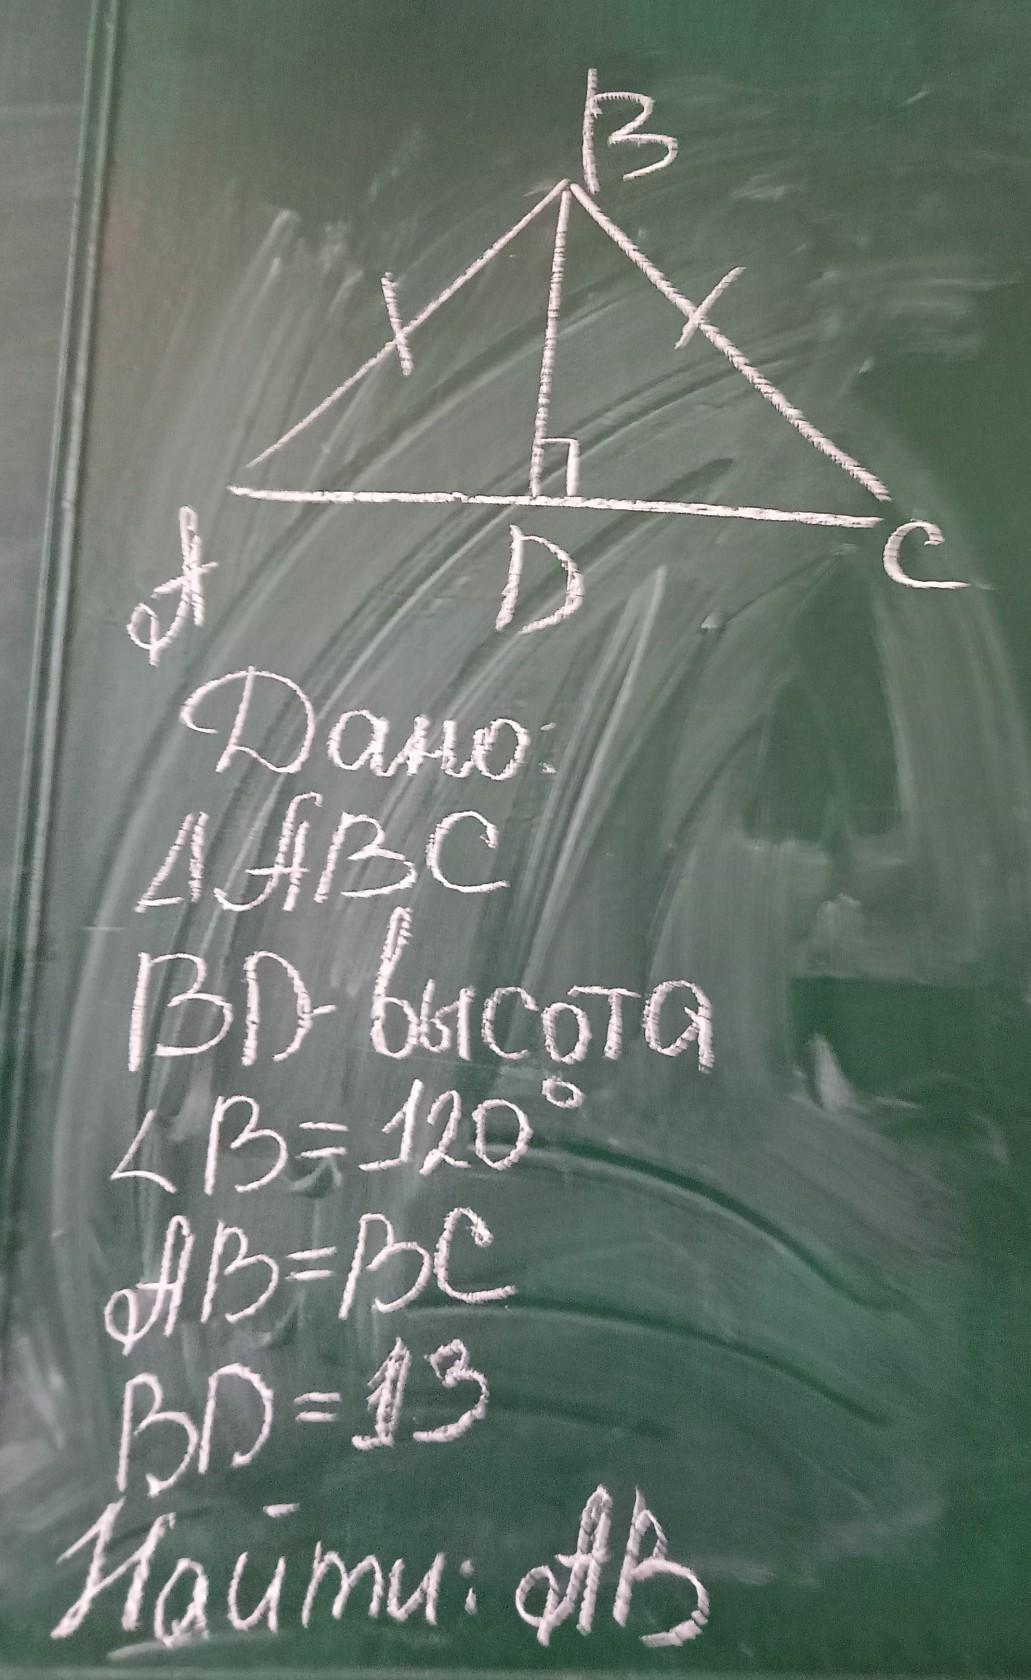 B
A
D
C
Дано:
△ABC
BD-высота
∠B=120°
AB=BC
BD=13
Найти: AB